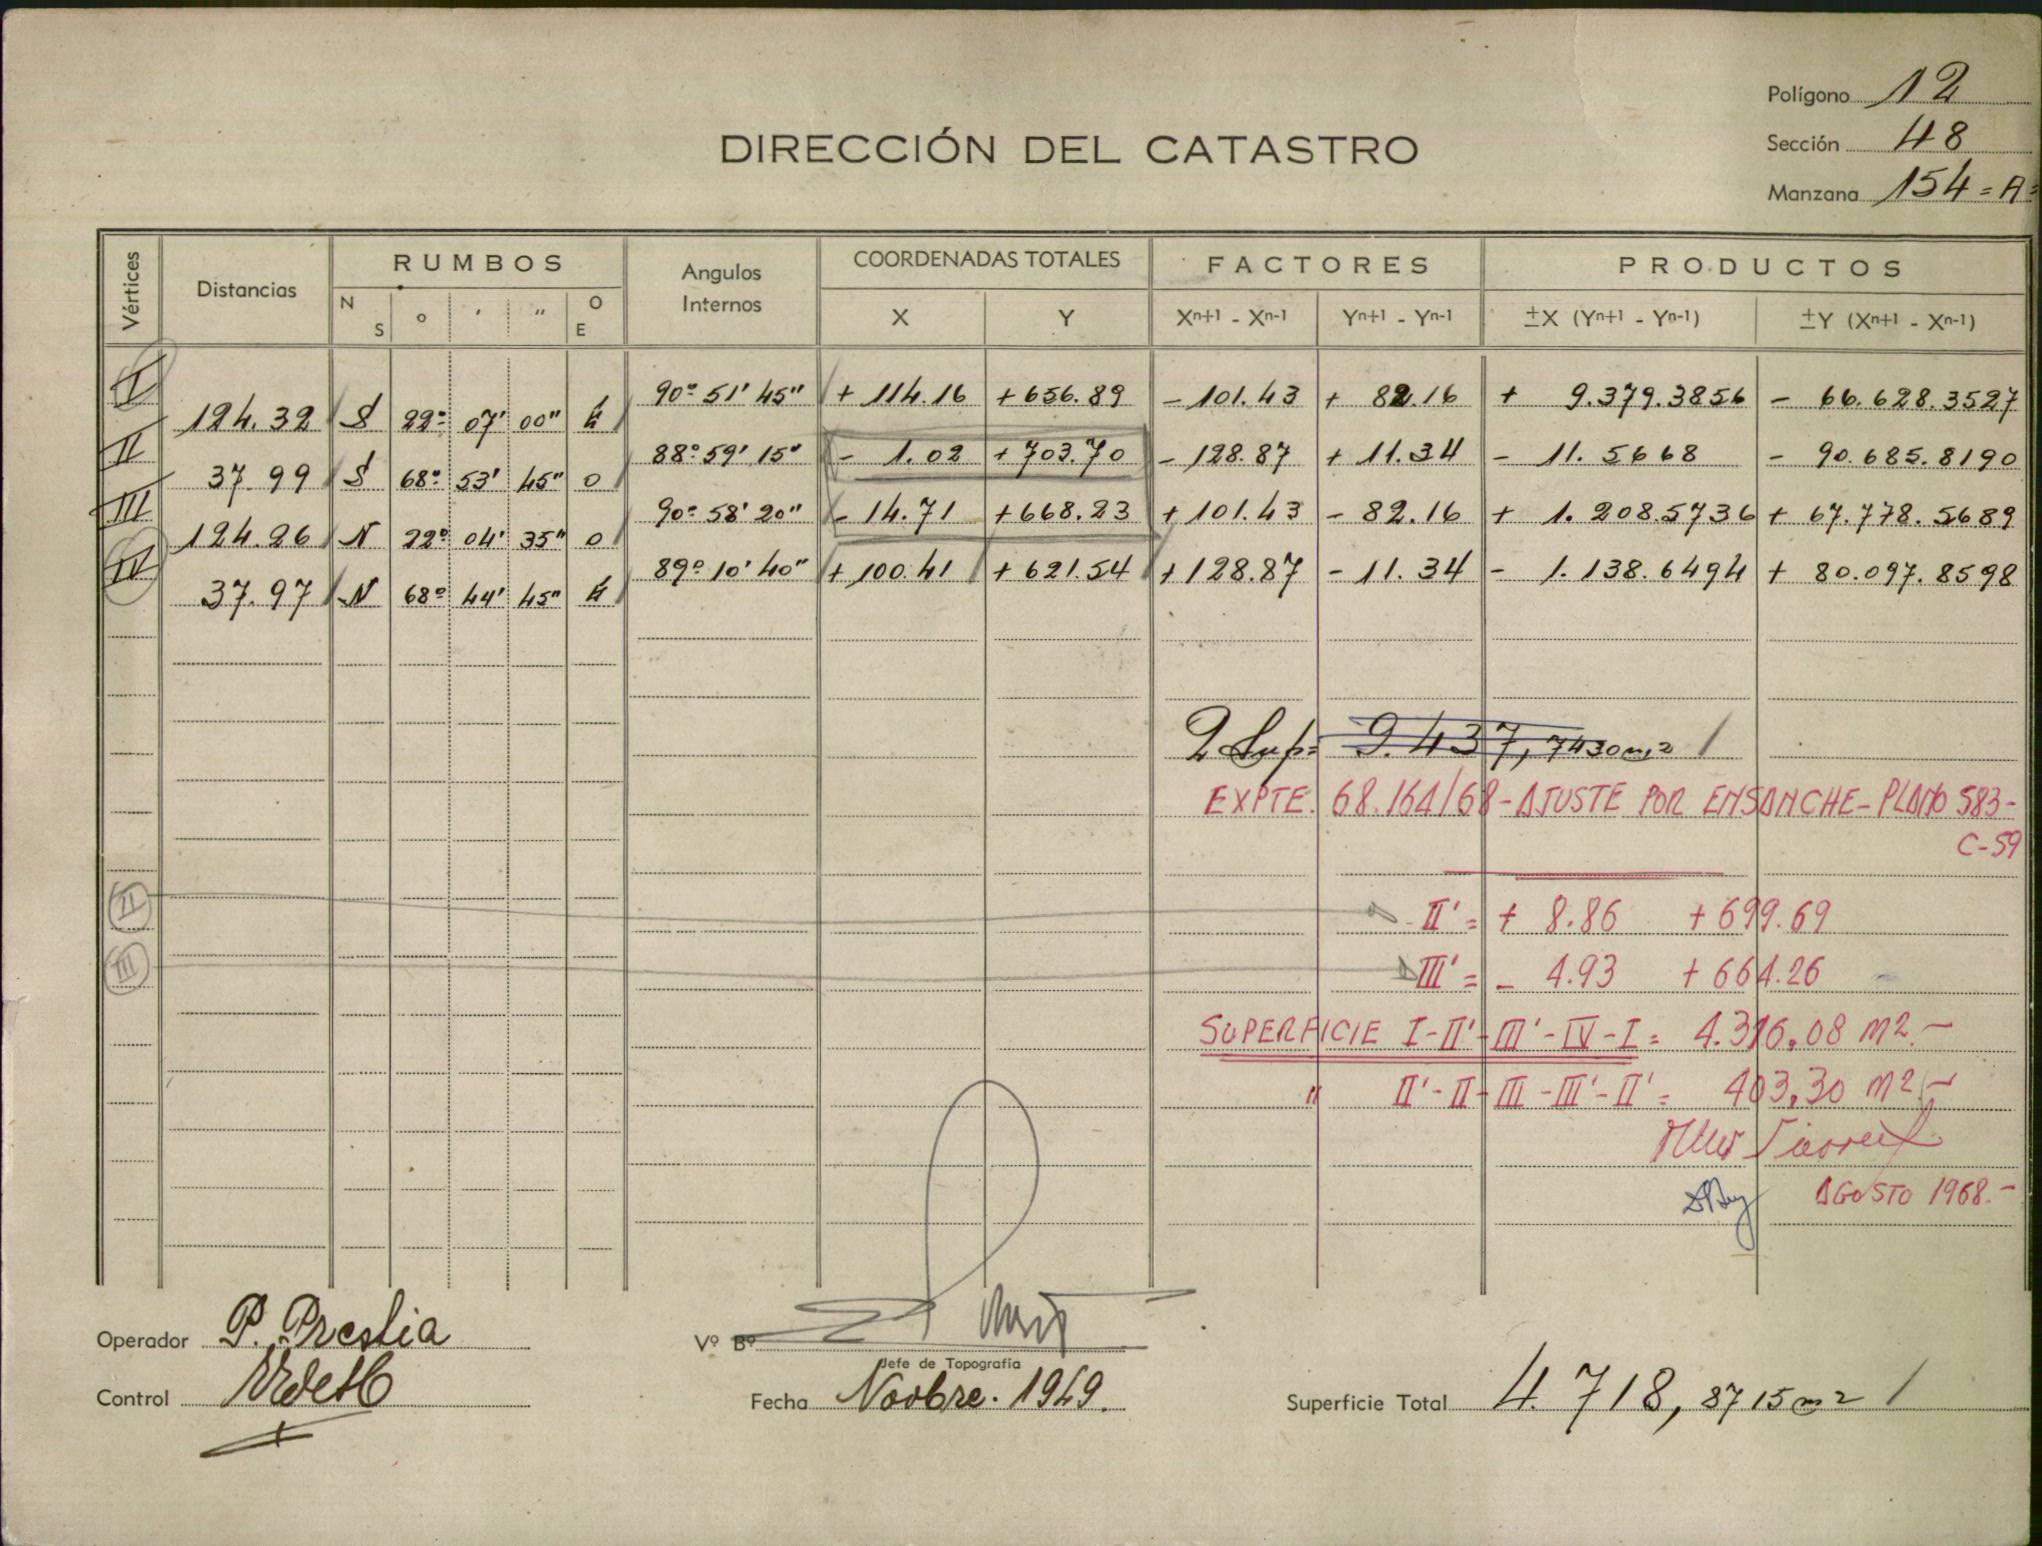 Polígono 12
DIRECCIÓN DEL CATASTRO
Sección 48
Manzana 154 = A =
Vértices Distancias RUMBOS Angulos Internos COORDENADAS TOTALES FACTORES PRODUCTOS
N S o ' " O E X Y Xn+1 - Xn-1 Yn+1 - Yn-1 ±X (Yn+1 - Yn-1) ±Y (Xn+1 - Xn-1)
I 90º 51' 45" + 114.16 + 656.89 - 101.43 + 82.16 + 9.379.3856 - 66.628.3527
124.32 S 22º 07' 00" E
II 88º 59' 15" - 1.02 + 703.70 - 128.87 + 11.34 - 11.5668 - 90.685.8190
37.99 S 68º 53' 45" O
III 90º 58' 20" - 14.71 + 668.23 + 101.43 - 82.16 + 1.208.5736 + 67.778.5689
124.26 N 22º 04' 35" O
IV 89º 10' 40" + 100.41 + 621.54 + 128.87 - 11.34 - 1.138.6494 + 80.097.8598
37.97 N 68º 44' 45" E
2 Sup = 9.437,7430 m2
EXPTE. 68.164/68 - AJUSTE POR ENSANCHE - PLANO 583-
C-59
II II' = + 8.86 + 699.69
III III' = - 4.93 + 664.26
SUPERFICIE I-II'-III'-IV-I = 4.316,08 m2.-
" II'-II-III-III'-II' = 403,30 m2.-
AGOSTO 1968.-
Operador P. Preslia
Vº Bº
Jefe de Topografía
Control
Fecha Novbre. 1949.
Superficie Total 4.718,8715 m2